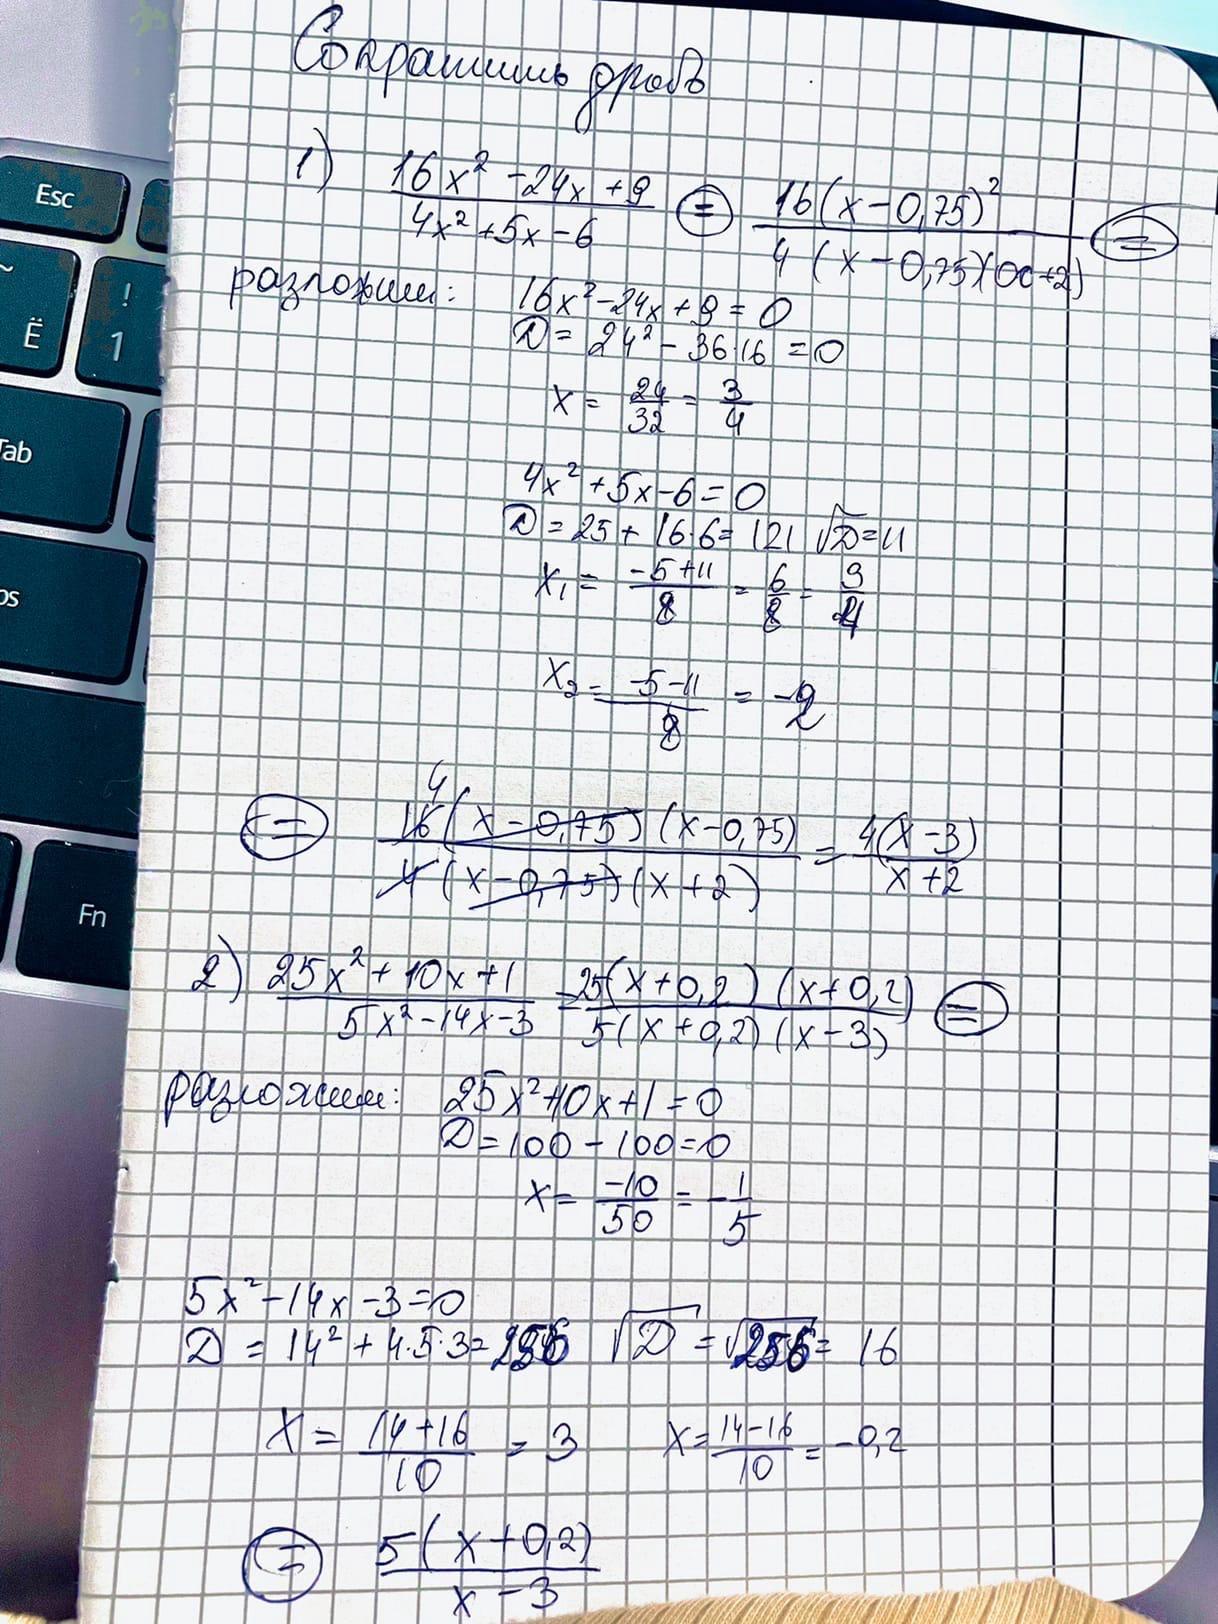 Сократить дробь
1) (16x² - 24x + 9)/(4x² + 5x - 6) = (16(x - 0,75)²)/(4(x - 0,75)(x + 2)) =
разложим: 16x² - 24x + 9 = 0
D = 24² - 36·16 = 0
x = 24/32 = 3/4
4x² + 5x - 6 = 0
D = 25 + 16·6 = 121 √D = 11
x₁ = (-5 + 11)/8 = 6/8 = 3/4
x₂ = (-5 - 11)/8 = -2
= (16(x - 0,75)(x - 0,75))/(4(x - 0,75)(x + 2)) = 4(x - 3)/(x + 2)
4
2) (25x² + 10x + 1)/(5x² - 14x - 3) = (25(x + 0,2)(x + 0,2))/(5(x + 0,2)(x - 3)) =
разложим: 25x² + 10x + 1 = 0
D = 100 - 100 = 0
x = -10/50 = -1/5
5x² - 14x - 3 = 0
D = 14² + 4·5·3 = 256 √D = √256 = 16
x = (14 + 16)/10 = 3 x = (14 - 16)/10 = -0,2
= 5(x + 0,2)/(x - 3)
Esc
~
Ё
!
1
Tab
ps
Fn